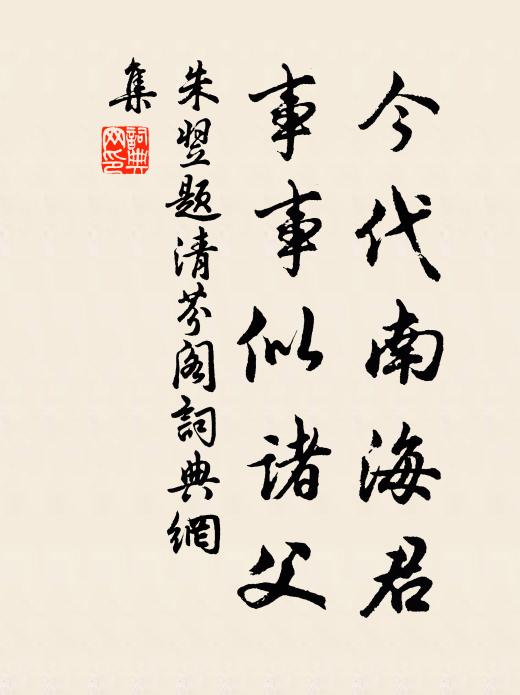 今代南海君
事事似诸父
朱翌题清芬阁詞典網
集
詞典
网印